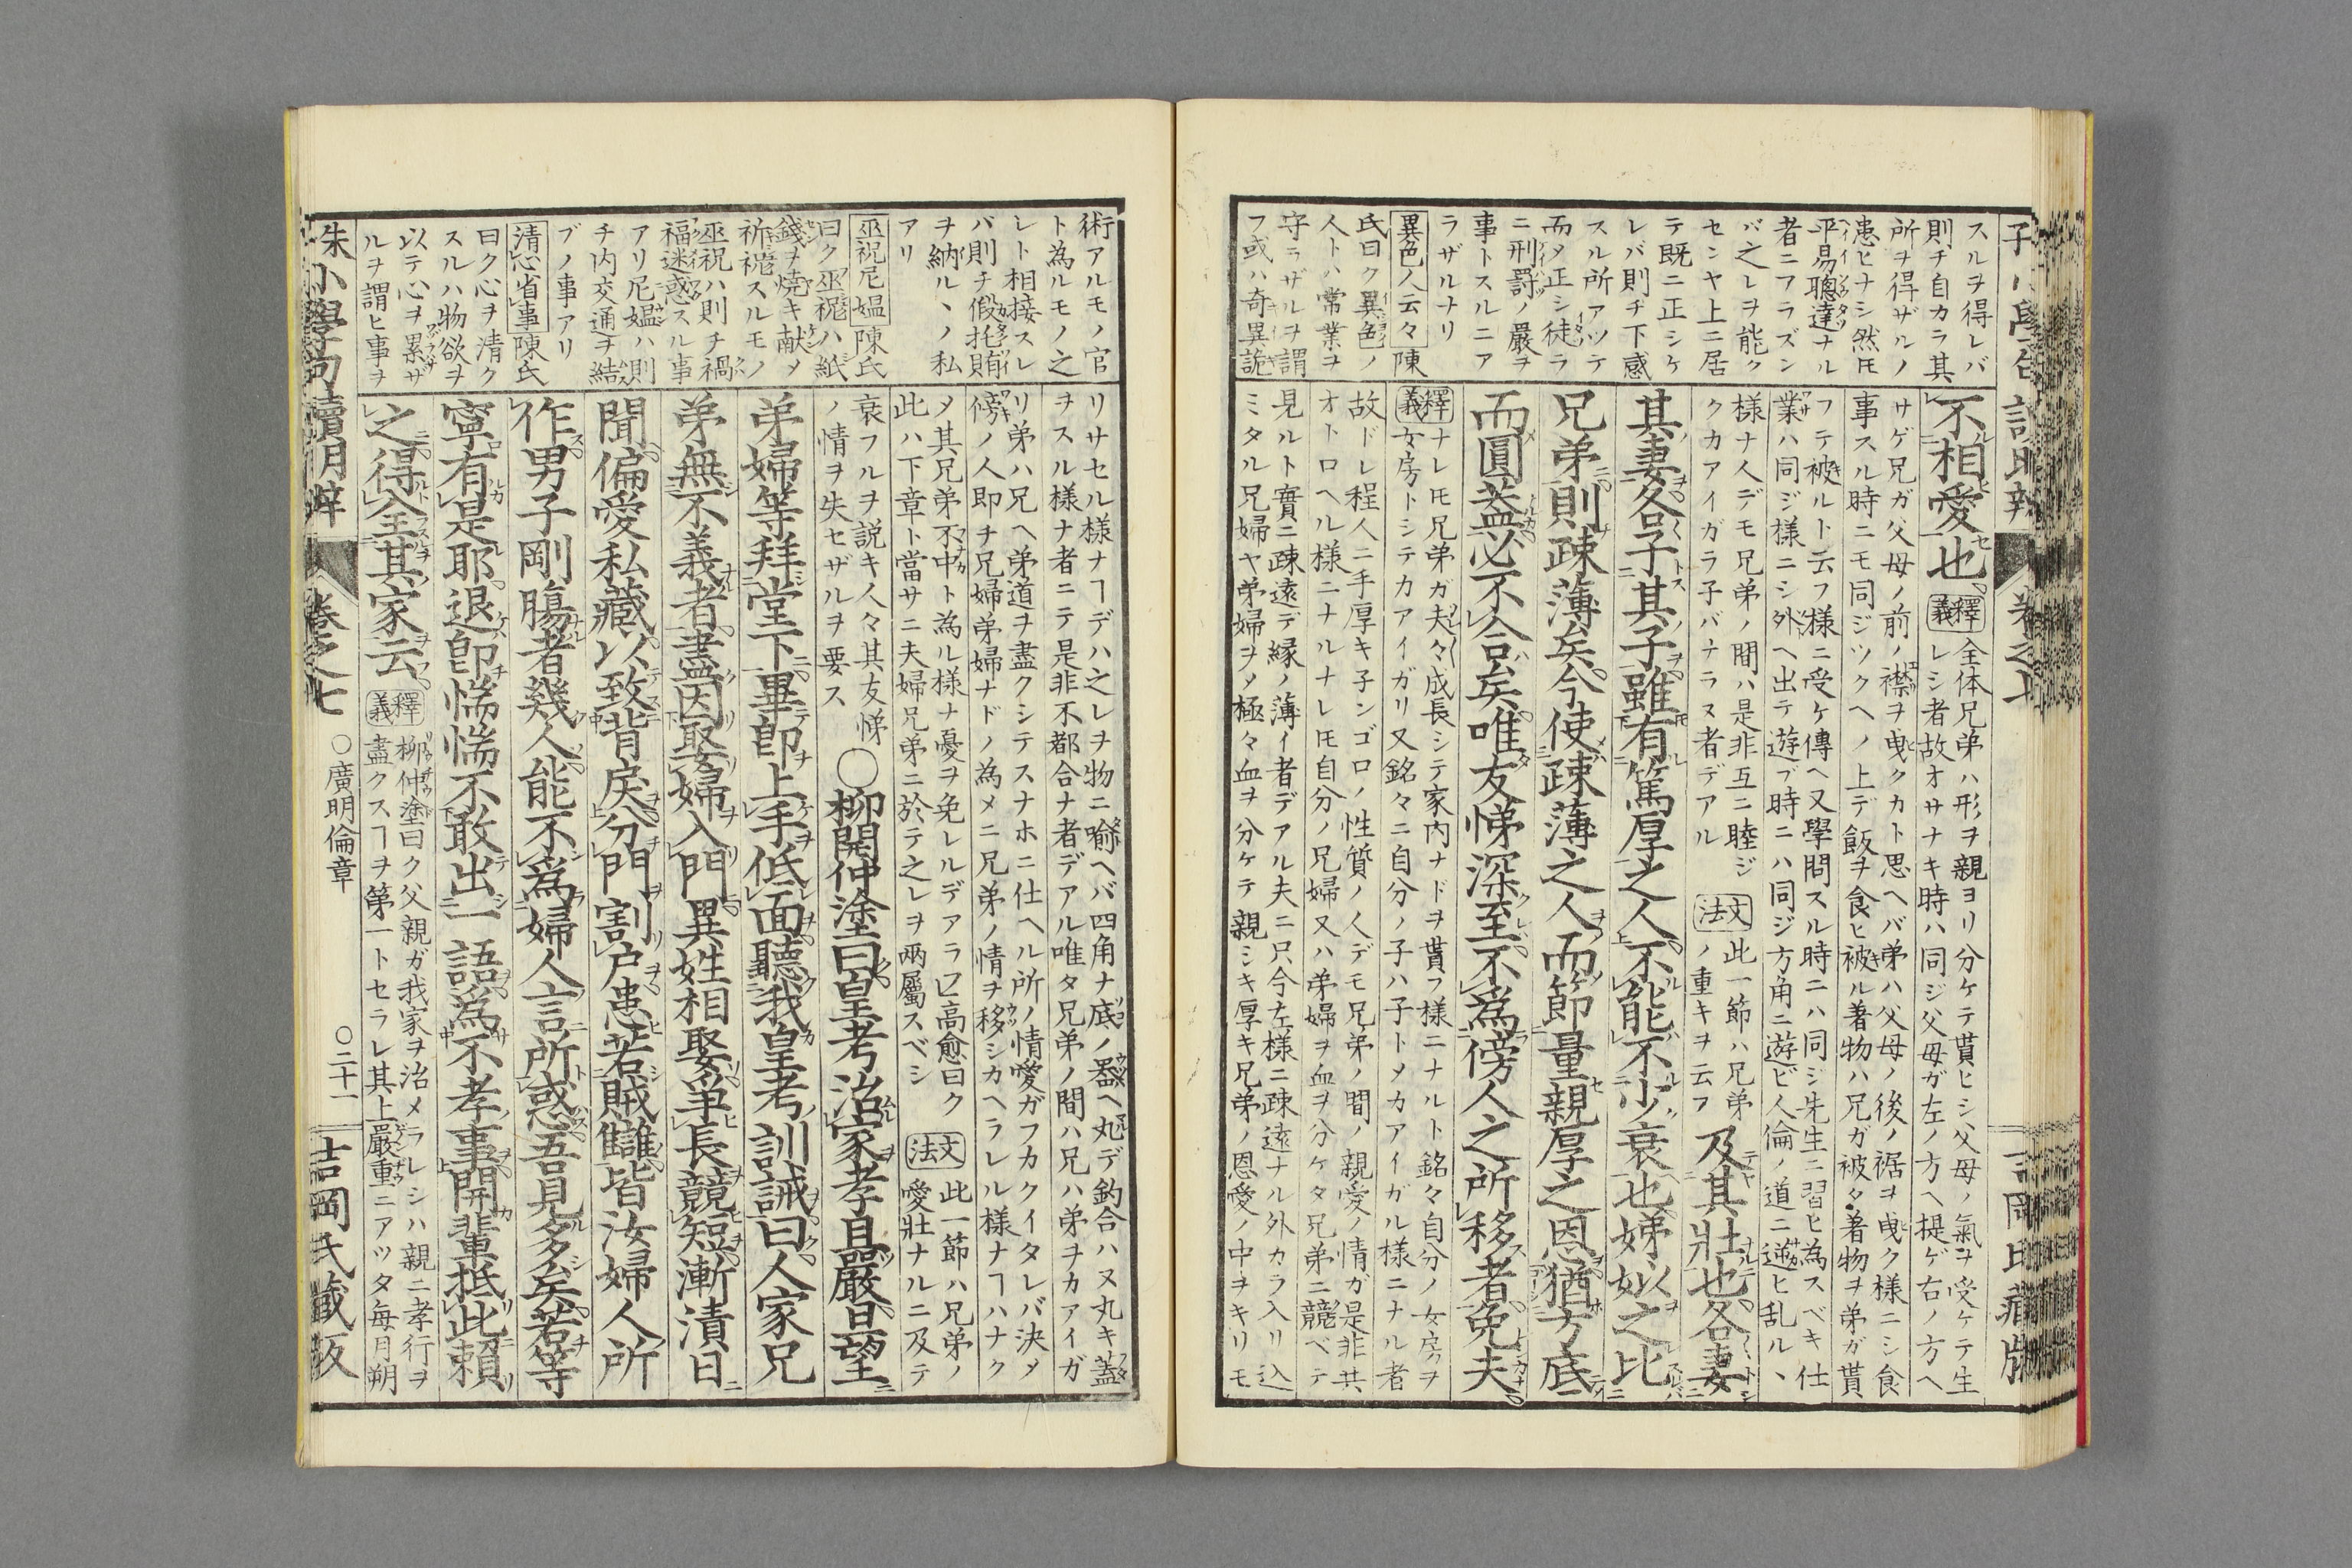 スルヲ得レバ
則チ自カラ其
所ヲ得ザルノ
患ヒナシ然モ
平易聰達ナル
者ニアラズン
バ之レヲ能ク
センヤ上ニ居
テ既ニ正シケ
レバ則チ下感
スル所アツテ
而タ正シ徒ラ
ニ刑罸ノ嚴ヲ
事トスルニア
ラザルナリ
異色人云々 陳
氏曰ク異色ノ
人トハ常業ヲ
守ラザルヲ謂
フ或ハ奇異詭
不相愛也 釋義 全体兄弟ハ形ヲ親ヨリ分ケテ貰ヒシ父母ノ氣ヲ受ケテ生
レシ者故オサナキ時ハ同ジ父母ガ左ノ方ヘ提ゲ右ノ方ヘ
サゲ兄ガ父母ノ前ノ襟ヲ曳クカト思ヘバ弟ハ父母ノ後ノ裾ヲ曳ク様ニシ食
事スル時ニモ同ジツクヘノ上デ飯ヲ食ヒ被ル着物ハ兄ガ被タ着物ヲ弟ガ貰
フテ被ルト云フ様ニ受ケ傳ヘ又學問スル時ニハ同ジ先生ニ習ヒ為スベキ仕
業ハ同ジ様ニシ外ヘ出テ遊ブ時ニハ同ジ方角ニ遊ビ人倫ノ道ニ逆ヒ乱ルヽ
様ナ人デモ兄弟ノ間ハ是非互ニ睦ジ
クカアイガラ子バナラヌ者デアル 文法 此一節ハ兄弟
ノ重キヲ云フ 及其壯也各妻
其妻各子其子雖有篤厚之人不能不少衰也娣姒之比
兄弟則疎薄矣今使疎薄之人而節量親厚之恩猶方底
而圓蓋必不合矣唯友悌深至不為傍人之所移者免夫
釋義 ナレモ兄弟ガ夫々成長シテ家内ナドヲ貰フ様ニナルト銘々自分ノ女房ヲ
女房トシテカアイガリ又銘々ニ自分ノ子ハ子トメカアイガル様ニナル者
故ドレ程人ニ手厚キ子ンゴロノ性質ノ人デモ兄弟ノ間ノ親愛ノ情ガ是非共
オトロヘル様ニナルナレモ自分ノ兄婦又ハ弟婦ヲ血ヲ分ケタ兄弟ニ競ベテ
見ルト實ニ疎遠デ縁ノ薄イ者デアル夫ニ只今左様ニ疎遠ナル外カラ入リ込
ミタル兄婦ヤ弟婦ヲメ極々血ヲ分ケテ親シキ厚キ兄弟ノ恩愛ノ中ヲキリモ
術アルモノ官
ト為ルモノ之
レト相接スレ
バ則チ假托賄
ヲ納ルヽノ私
アリ
巫祝尼媼 陳氏
曰ク巫祝ハ紙
錢ヲ焼キ献メ
祈禱スルモノ
巫祝ハ則チ禍
福迷惑スル事
アリ尼媼ハ則
チ内交通ヲ結
ブノ事アリ
清心省事 陳氏
曰ク心ヲ清ク
スルハ物欲ヲ
以テ心ヲ累ザ
ルヲ謂ヒ事ヲ
リサセル様ナヿデハ之レヲ物ニ喻ヘバ四角ナ底ノ器ヘ丸デ釣合ハヌ丸キ蓋
ヲスル様ナ者ニテ是非不都合ナ者デアル唯タ兄弟ノ間ハ兄ハ弟ヲカアイガ
リ弟ハ兄ヘ弟道ヲ盡クシテスナホニ仕ヘル所ノ情愛ガフカクイタレバ決メ
傍ノ人即チ兄婦弟婦ナドノ為メニ兄弟ノ情ヲ移シカヘラレル様ナヿハナク
メ其兄弟不中ト為ル様ナ憂ヲ免レルデアラフ高愈曰ク
此ハ下章ト當サニ夫婦兄弟ニ於テ之レヲ兩屬スベシ 文法 此一節ハ兄弟ノ
愛壯ナルニ及テ
衰フルヲ説キ人々其友悌
ノ情ヲ失セザルヲ要ス ○柳開仲塗曰皇考治家孝且嚴旦望
弟婦等拜堂下畢即上手低面聽我皇考訓誡曰人家兄
弟無不義者盡因娶婦入門異姓相娶爭長競短漸漬日
聞偏愛私藏以致背戾分門割户患若賊讎皆汝婦人所
作男子剛膓者幾人能不為婦人言所惑吾見多矣若等
寧有是耶退卽惴惴不敢出一語為不孝事開輩抵此賴
之得全其家云 釋義 柳仲塗曰ク父親ガ我家ヲ治メラレシハ親ニ孝行ヲ
盡クスヿヲ第一トセラレ其上嚴重ニアツタ毎月朔
朱小學句讀明辨 卷之七 ○廣明倫章 ○二十一 吉岡氏藏版